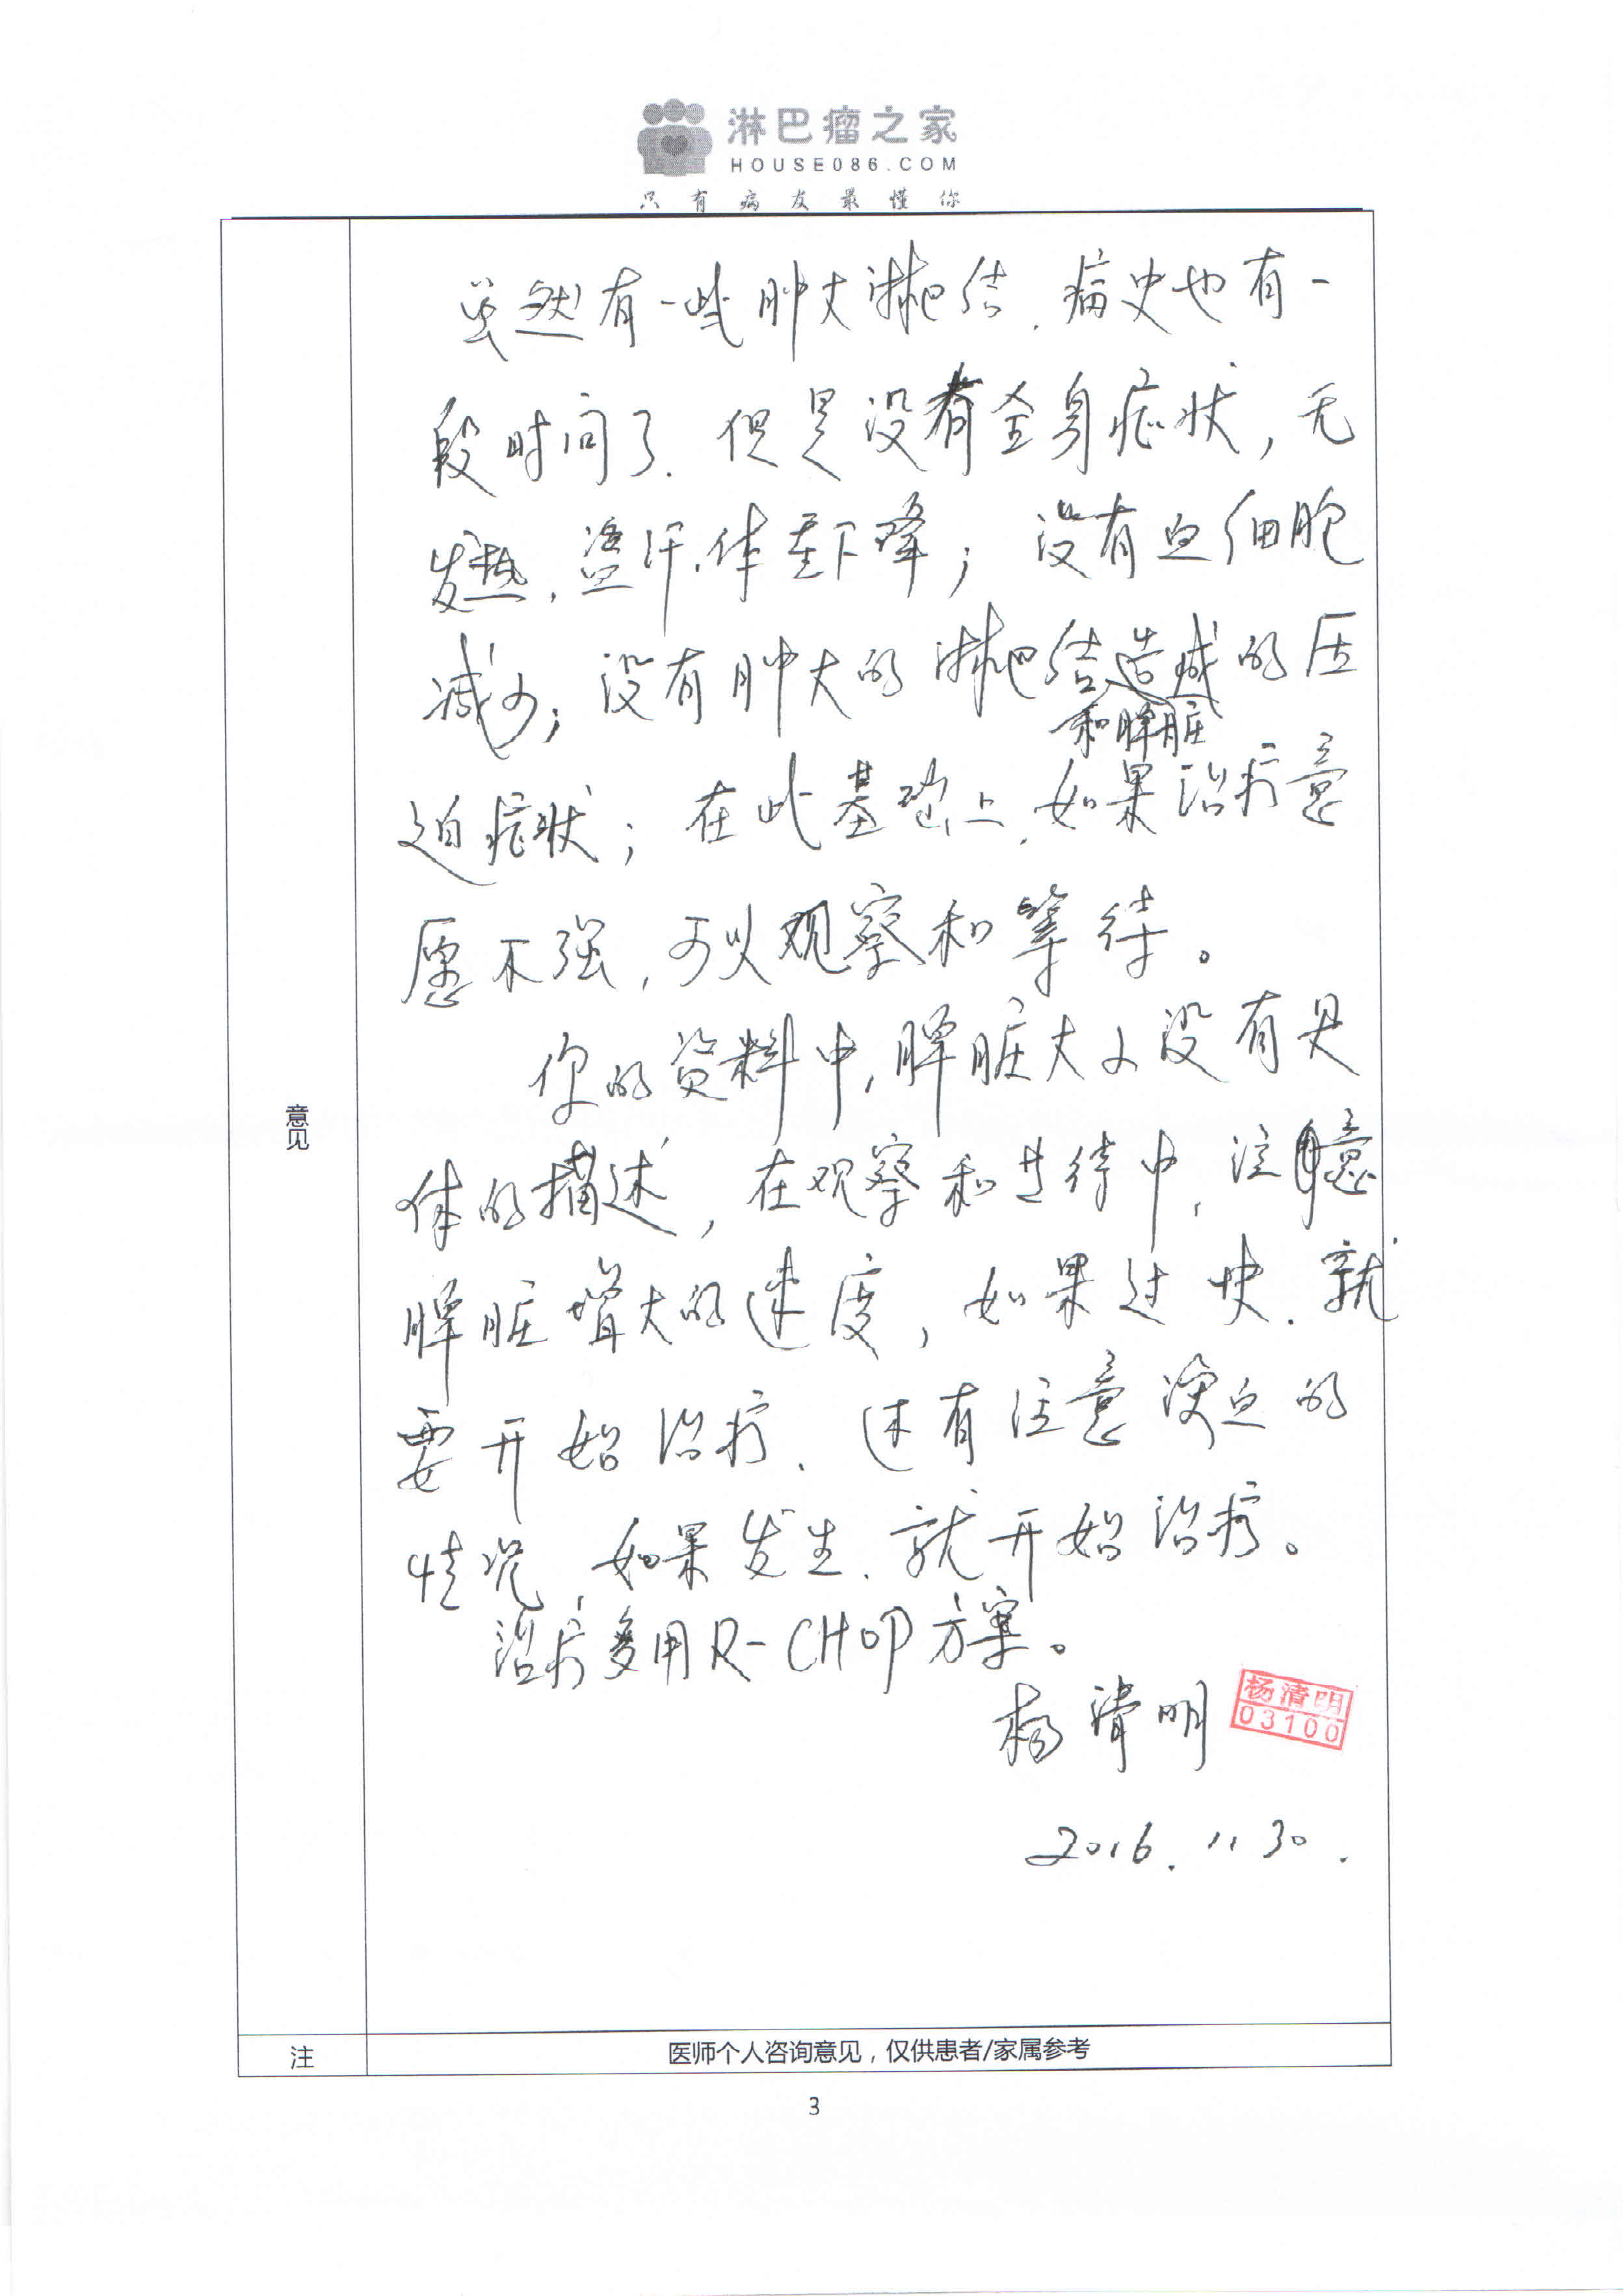 淋巴瘤之家
HOUSE086.COM
只有病友最懂你
虽然有一些肿大淋巴结,病史也有一
段时间了.但是没有全身症状,无
发热,盗汗,体重下降;没有血细胞
减少;没有肿大的淋巴结造成的压
和脾脏
迫症状;在此基础上,如果治疗意
愿不强,可以观察和等待。
你的资料中,脾脏大小没有具
体的描述,在观察和等待中,注意
脾脏增大的速度,如果过快.就
要开始治疗.还有注意溶血的
情况,如果发生.就开始治疗。
治疗多用R-CHOP方案。
杨清明
杨清明
03100
2016.11.30.
意见
注
医师个人咨询意见,仅供患者/家属参考
3